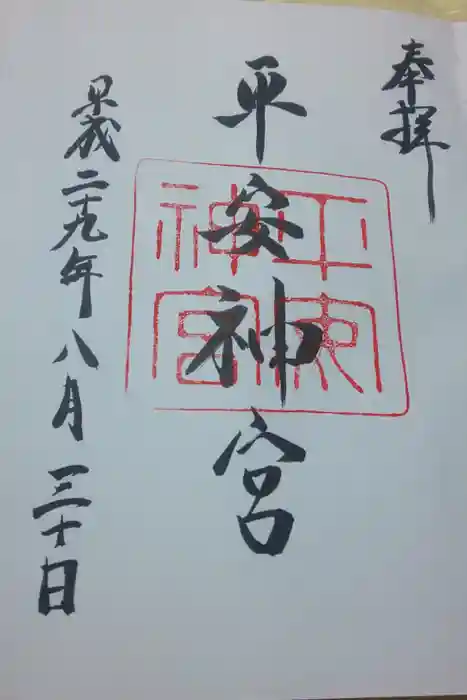 奉拝
平安神宮
平安神宮
平成二十九年八月三十日